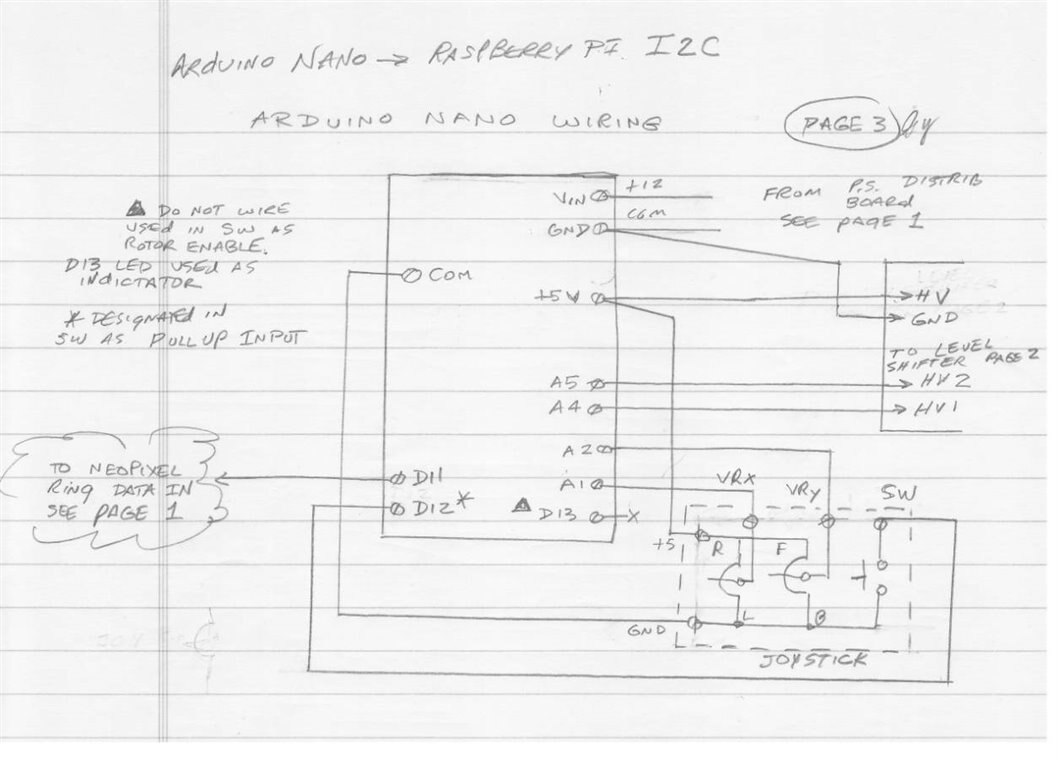 ARDUINO NANO → RASPBERRY PI I2C
ARDUINO NANO WIRING
PAGE 3
VIN
+12
COM
GND
FROM P.S. DISTRIB
BOARD
SEE PAGE 1
▲ DO NOT WIRE
USED IN SW AS
ROTOR ENABLE.
D13 LED USED AS
INDICTATOR
* DESIGNATED IN
SW AS PULLUP INPUT
COM
+5V
HV
GND
TO LEVEL
SHIFTER PAGE 2
A5
HV2
A4
HV1
A2
TO NEOPIXEL
RING DATA IN
SEE PAGE 1
D11
D12*
A1
▲ D13 X
VRX
VRY
SW
+5
R
F
GND
L
B
JOYSTICK